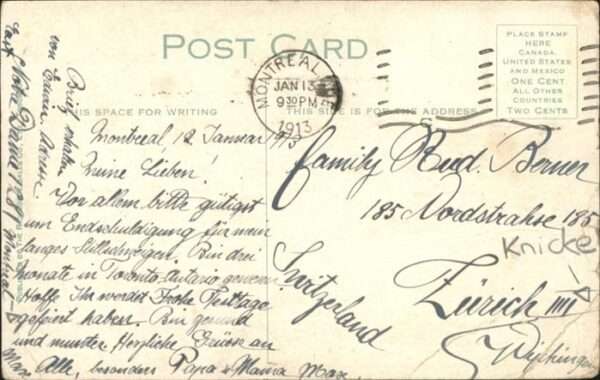 POST CARD
PLACE STAMP
HERE
CANADA,
UNITED STATES
AND MEXICO
ONE CENT
ALL OTHER
COUNTRIES
TWO CENTS
MONTREAL
JAN 13
9 30 PM
1913
THIS SPACE FOR WRITING
THIS SIDE IS FOR THE ADDRESS
Montreal, 12. Januar 1913
Meine Lieben!
Vor allem bitte gütigst
um Endschuldigung für mein
langes Stillschweigen. Bin drei
Monate in Toronto Ontario gewesen
Hoffe Ihr werdet Frohe Festtage
gefeiert haben. Bin gesund
und munter. Herzliche Grüsse an
Alle, besonders Papa u Mama Max.
Brief erhalten
von Edwin
East Notre Dame
Montreal
Family Rud. Berner
185 Nordstrahse 185
Zürich IIII
Switzerland
Knicke